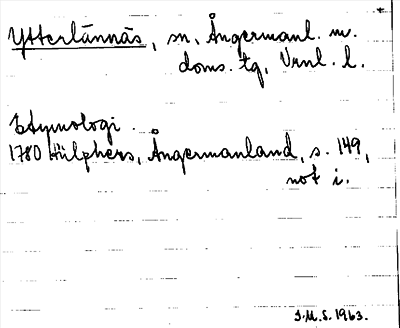 Ytterlännäs, sn, Ångermanl. m.
doms. tg, Vrnl. l.
Etymologi.
1780 Hülphers, Ångermanland, s. 149,
not i.
I.M.S. 1963.